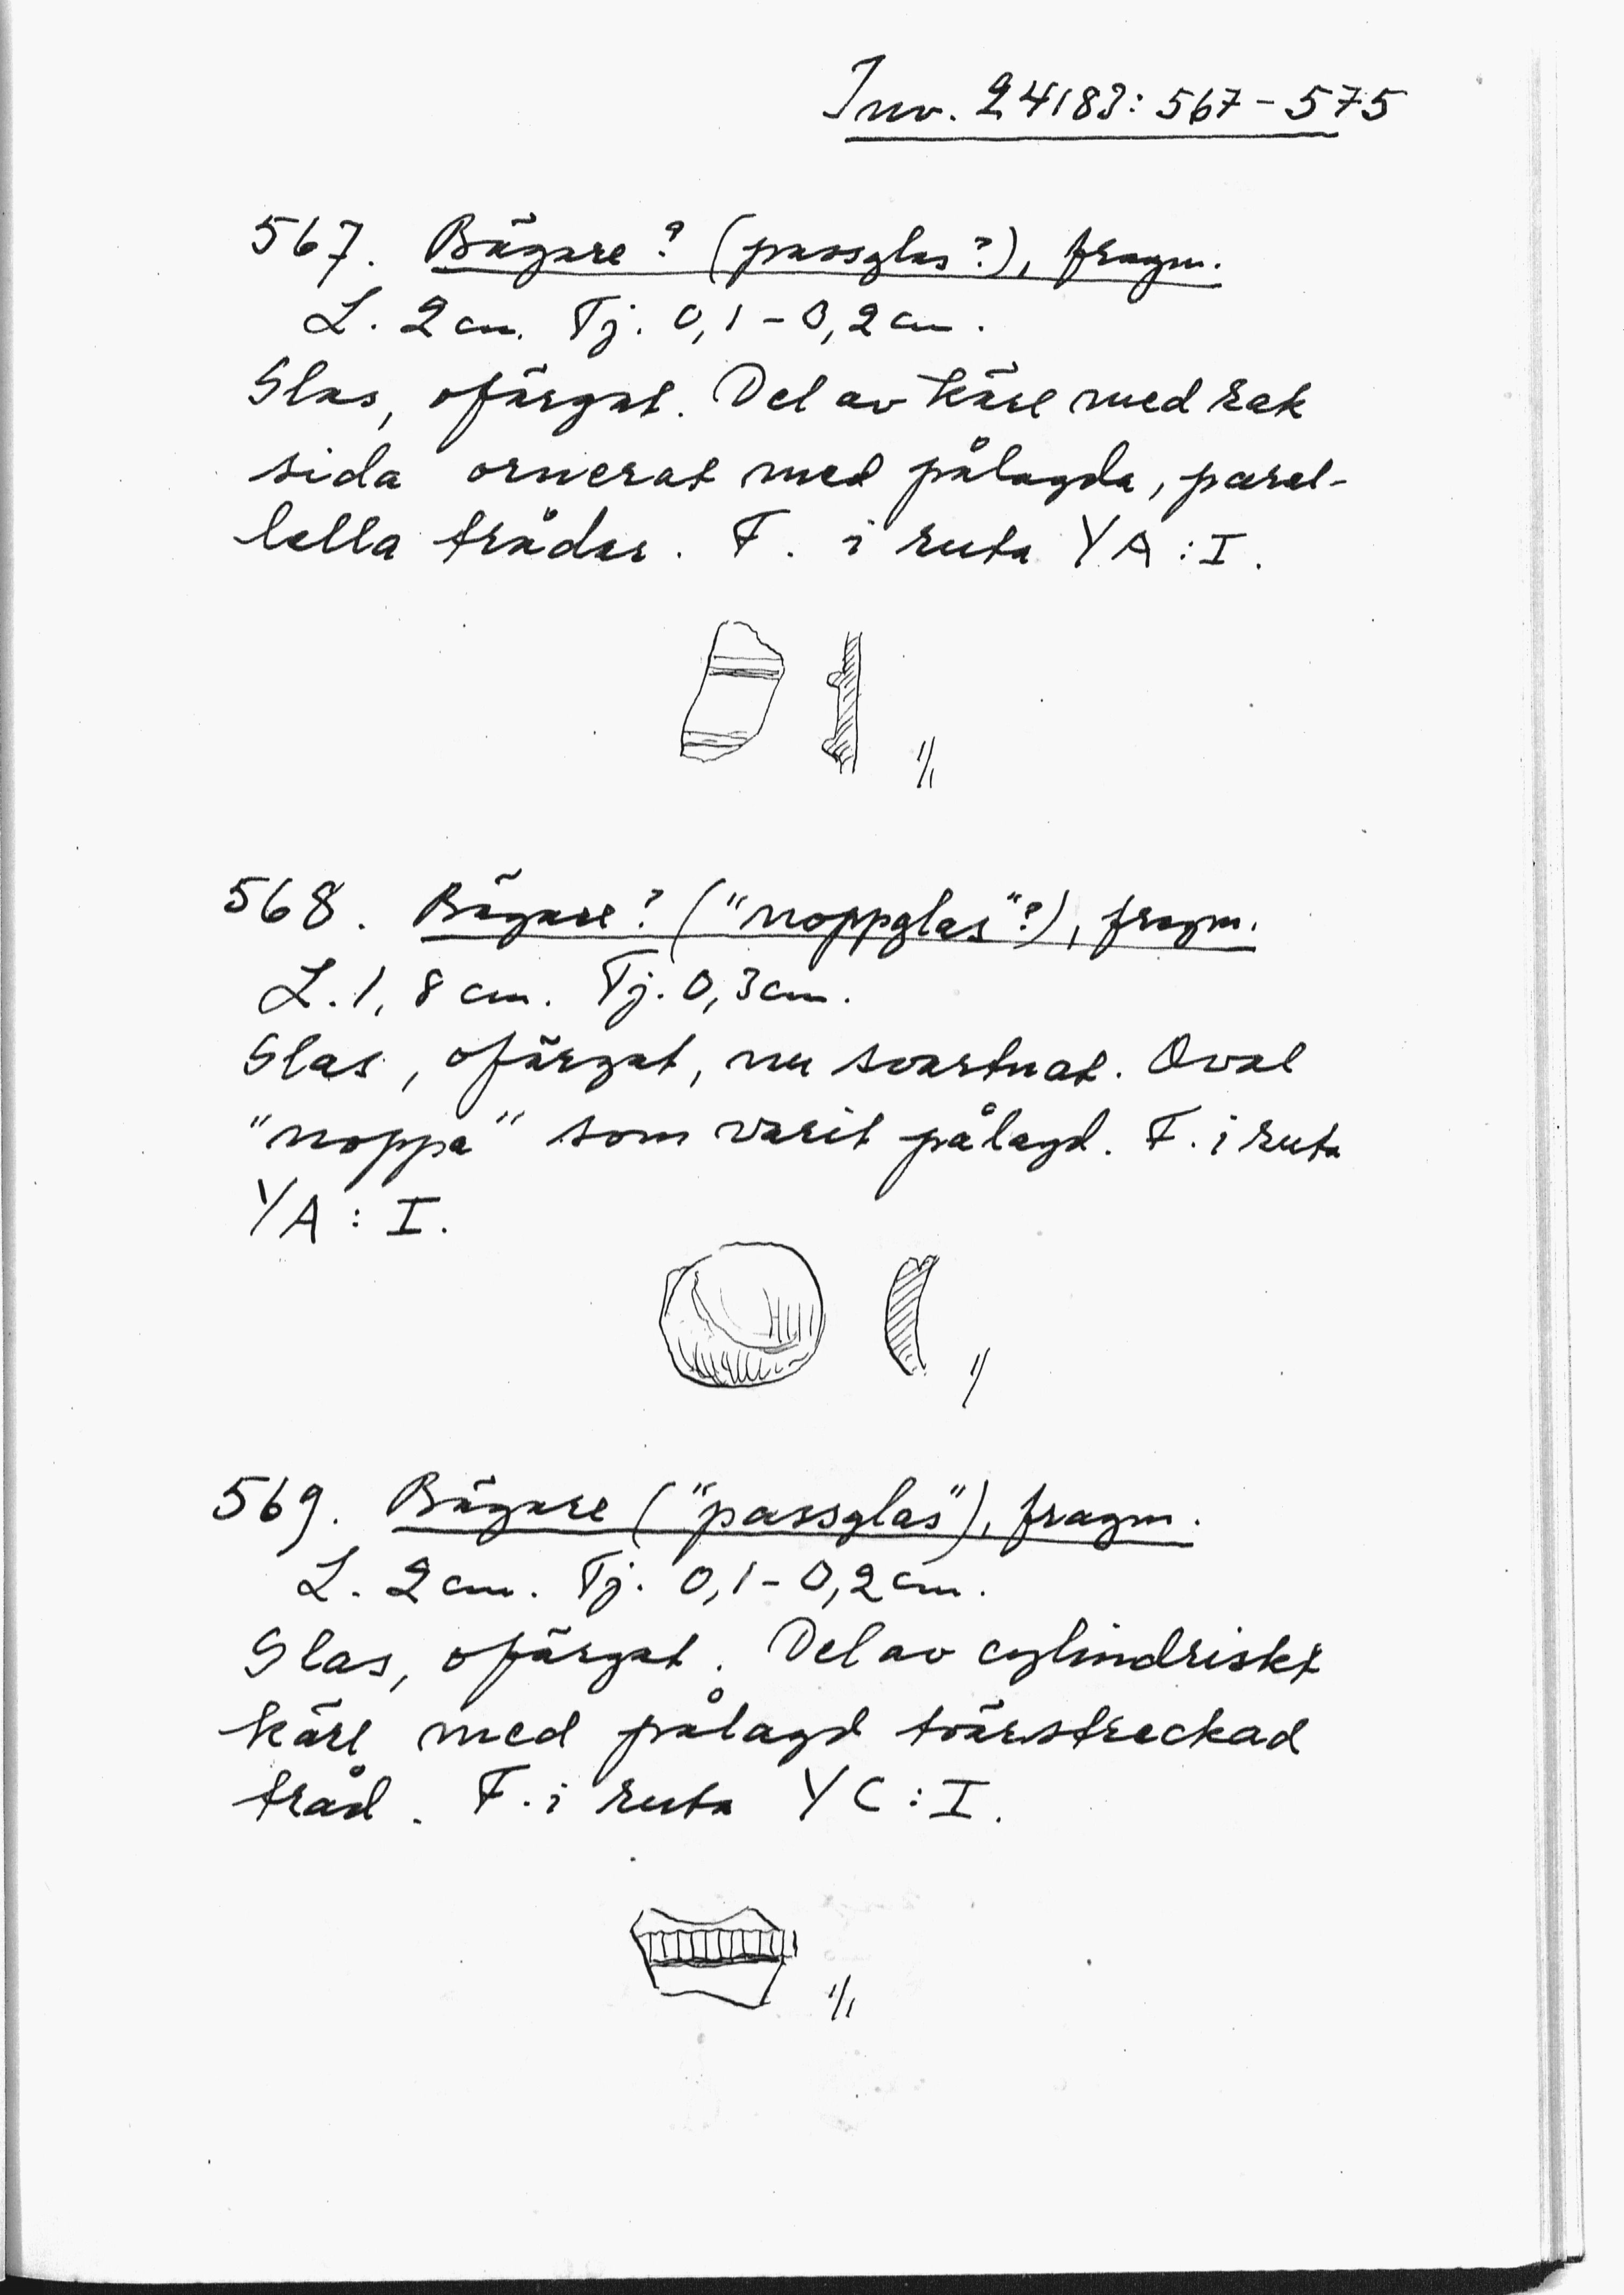 Inv. 24183: 567-575
567. Bägare? (passglas?), fragm.
L. 2 cm. Tj. 0,1-0,2 cm.
Glas, ofärgat. Del av kärl med rak
sida ornerat med pålagda, paral-
lella trådar. F. i ruta YA:I.
1/1
568. Bägare? ("noppglas"?), fragm.
L. 1,8 cm. Tj. 0,3 cm.
Glas, ofärgat, nu svartnat. Oval
"noppa" som varit pålagd. F. i ruta
YA: I.
1/
569. Bägare ("passglas"), fragm.
L. 2 cm. Tj. 0,1-0,2 cm.
Glas, ofärgat. Del av cylindriskt
kärl med pålagd tvärstreckad
tråd. F. i ruta YC:I.
1/1